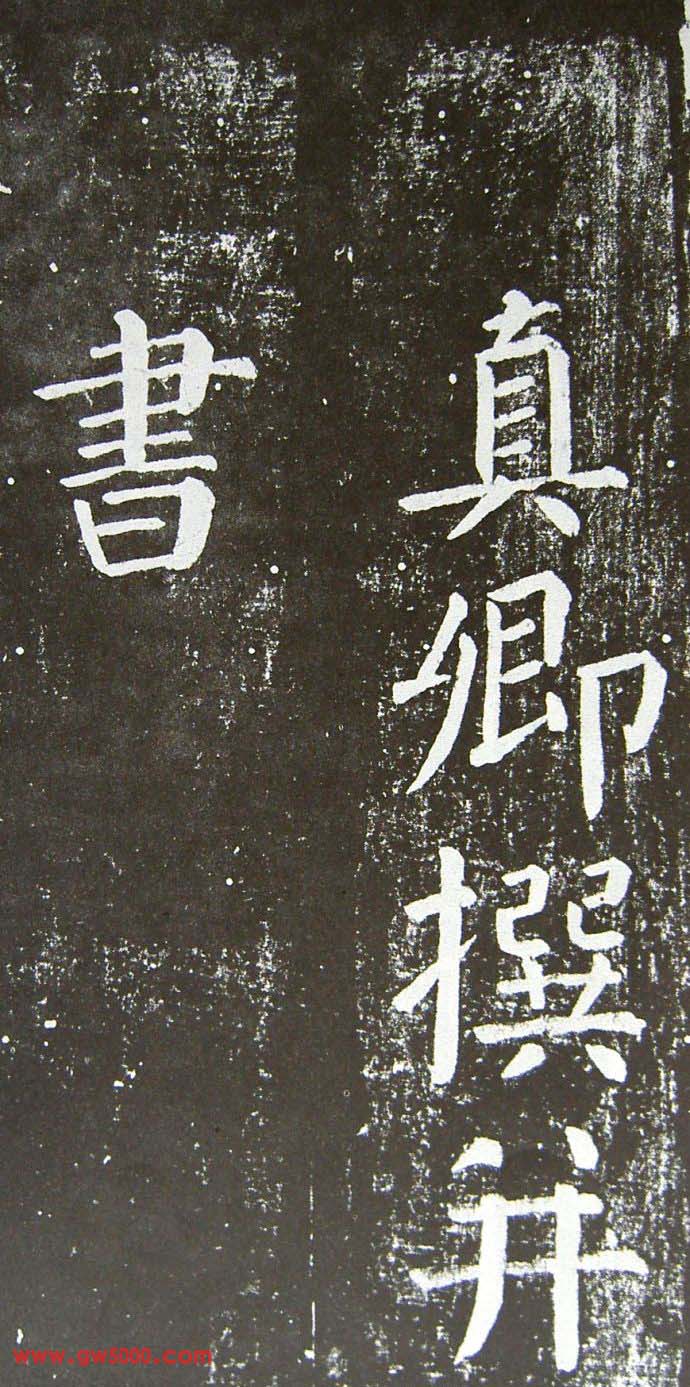 真卿撰并
書
www.gw5000.com